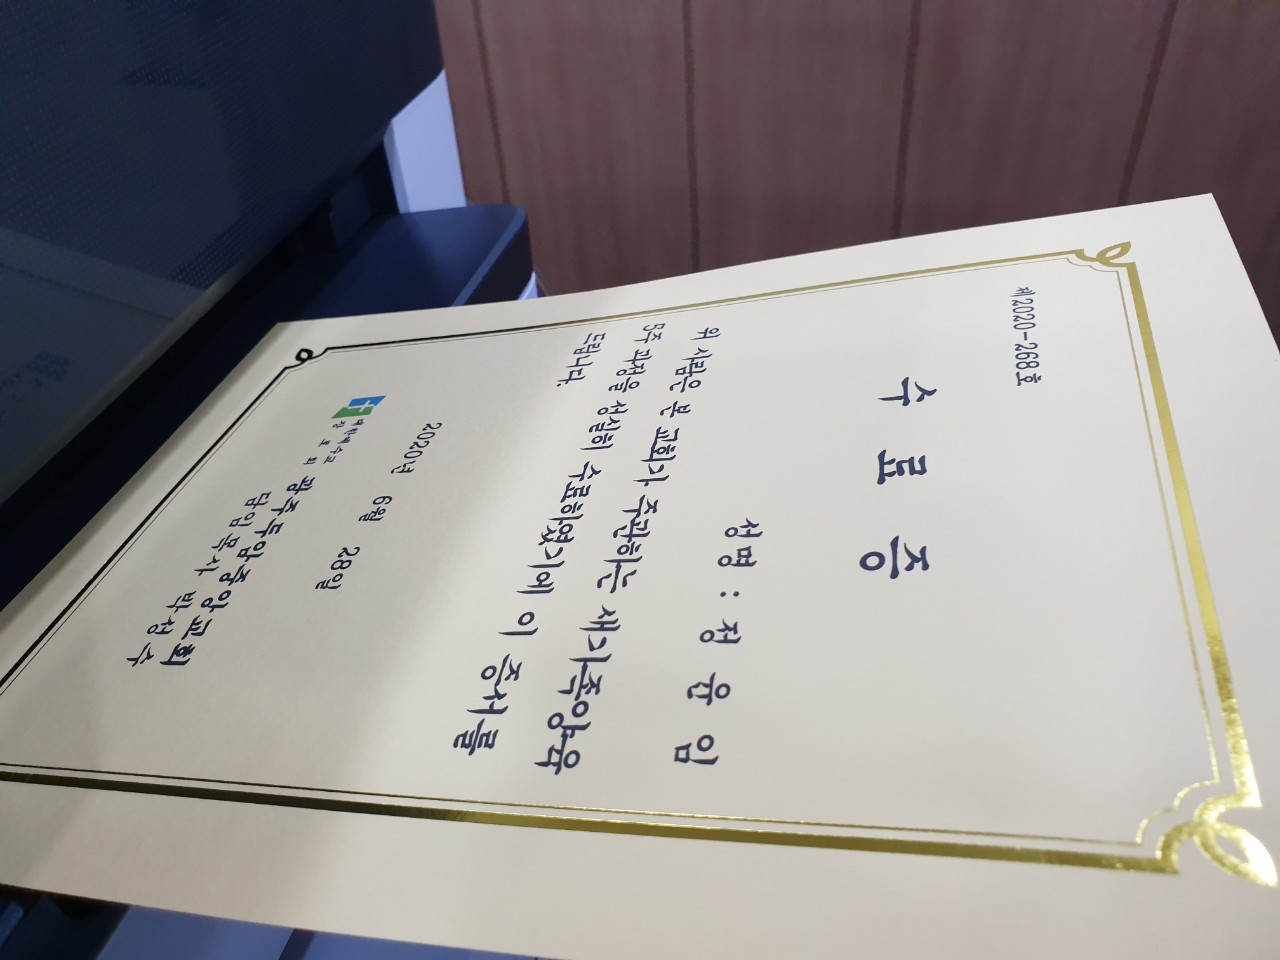 제2020-268호
수 료 증
성명 : 정 윤 임
위 사람은 본 교회가 주관하는 새가족양육
5주 과정을 성실히 수료하였기에 이 증서를
드립니다.
2020년 6월 28일
대한예수교
장 로 회
광주두암중앙교회
담임목사 박정수